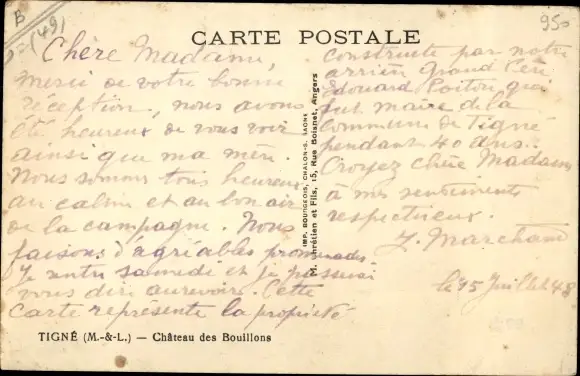 B
(49)
950
CARTE POSTALE
Chère Madame,
Merci de votre bonne
réception, nous avons
été heureux de vous voir
ainsi que ma mère.
Nous sommes tous heureux
au calme et au bon air
de la campagne. Nous
faisons d'agréables promenades.
Je rentre samedi et je passerai
vous dire au revoir. Cette
Carte représente la propriété
construite par notre
arrière Grand Père
Edouard Poitou qui
fut maire de la
Commune de Tigné
pendant 40 ans.
Croyez chère Madame
à mes sentiments
respectueux.
Marchand
le 15 Juillet 48
IMP. BOURGEOIS, CHALON-S. SAONE
M. Chrétien et Fils, 15, Rue Boisnet, Angers
TIGNÉ (M.-&-L.) — Château des Bouillons